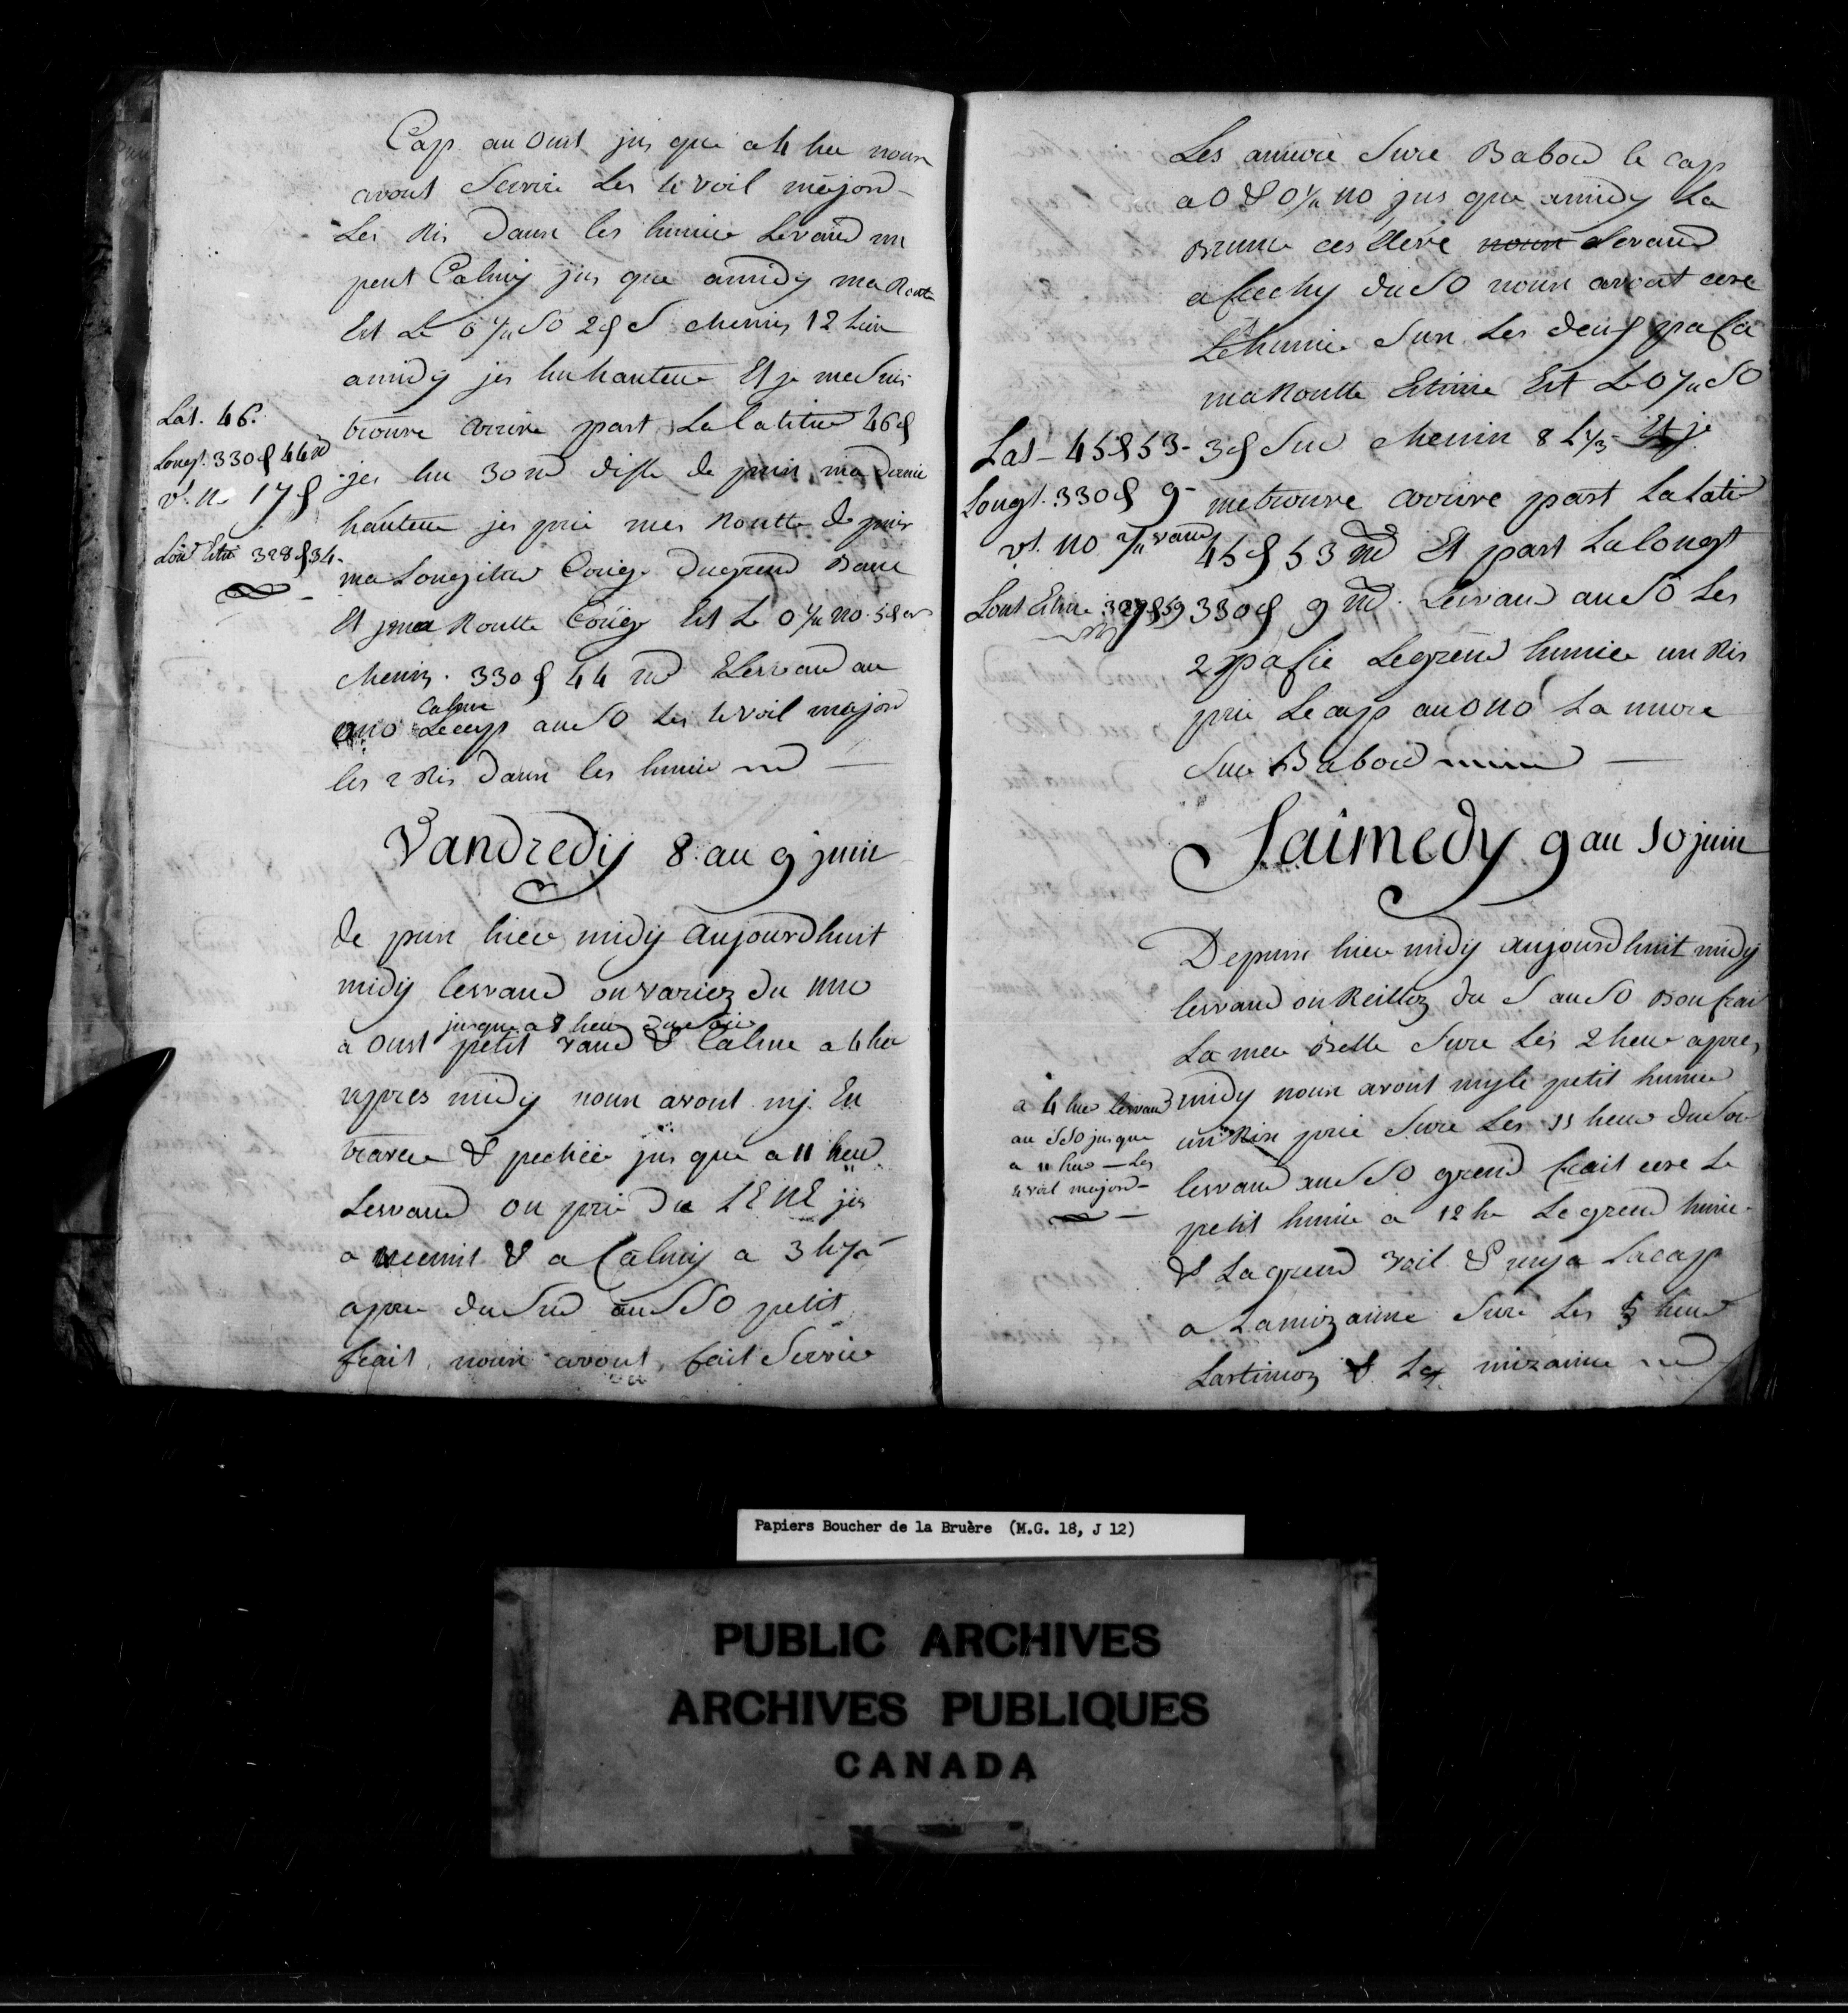 Cap au Oust jus que a 4 heu nous
avont Servie Les 4 voil mājord
Les Ris dans les hunier Levand un
peut Calmij jus que amidy ma Route
Est Le O ¼ SO 2 g S chemin 12 Lieu
amidy jes hu hauteur Et je me Suis
trouve arrive part La latitud 46 g
jes hu 30 md diff de puis ma dernie
hauteur jes prie mes Routte de puis
ma Longitud Corige du grand Banc
Et ma Routte Corige Est Le O ¼ no 5 g
chemin 330 g 44 md Levand au
Calme
ono Le cap au SO Les 4 voil majord
les 2 Ris dans les hunie
Lat. 46.
Longt. 330 g 44 md
vt. no 17 g
Lon Estie 328 g 34
Vandredij 8 au 9 juin
de puis hiere midij aujourdhuit
midij levand on variez du nno
jusque a 8 heu du Soire
a Oust petit vand & Calme a 4 heu
appres midij nous avont mj En
traver & pechée jus que a 11 heu
Levand on prie du LENE jis
a & a Calmij a 3 h ½
apre du Sud au SSO petit
frait nous avont fait Servie
Les amure Sure Babord le cap
a O & O ¼ no jus que amidy La
Brume ces Elevé nous Levand
a frechy du SO nous avont cere
Le hunie Sur Les deux
ma Routte Estimie Est Le O ¼ SO
3 g Sud chemin 8 L ⅓ Et je
me trouve arrive part La Latid
45 g 53 md Et part La longt
330 g 9 md Levand au SO Les
2 pafie Le grend hunier un Ris
prie Le cap au ono La mure
Sure Babord
Lat - 45 g 53 -
Longt. 330 g 9 -
vt. no
Lont Estime
Saimedy 9 au 10 juin
Depuis hiere midij aujourdhuit midij
levand on Reillez du S au SO Bon frai
La mer Belle Sure Les 2 heur apres
midy nous avont my le petit hunier
un Ris prie Sure Les 11 heur du Soi
levand au SSO grend frait cere Le
petit hunie a 12 he Le grend hunie
& La grend voil & my a La cap
a La mizainne Sure Les 5 heur
Lartimon & La mizainne
a 4 heu Levand
au SSO jusque
a 11 heu — Les
4 voil majord —
Papiers Boucher de la Bruère (M.G. 18, J 12)
PUBLIC ARCHIVES
ARCHIVES PUBLIQUES
CANADA